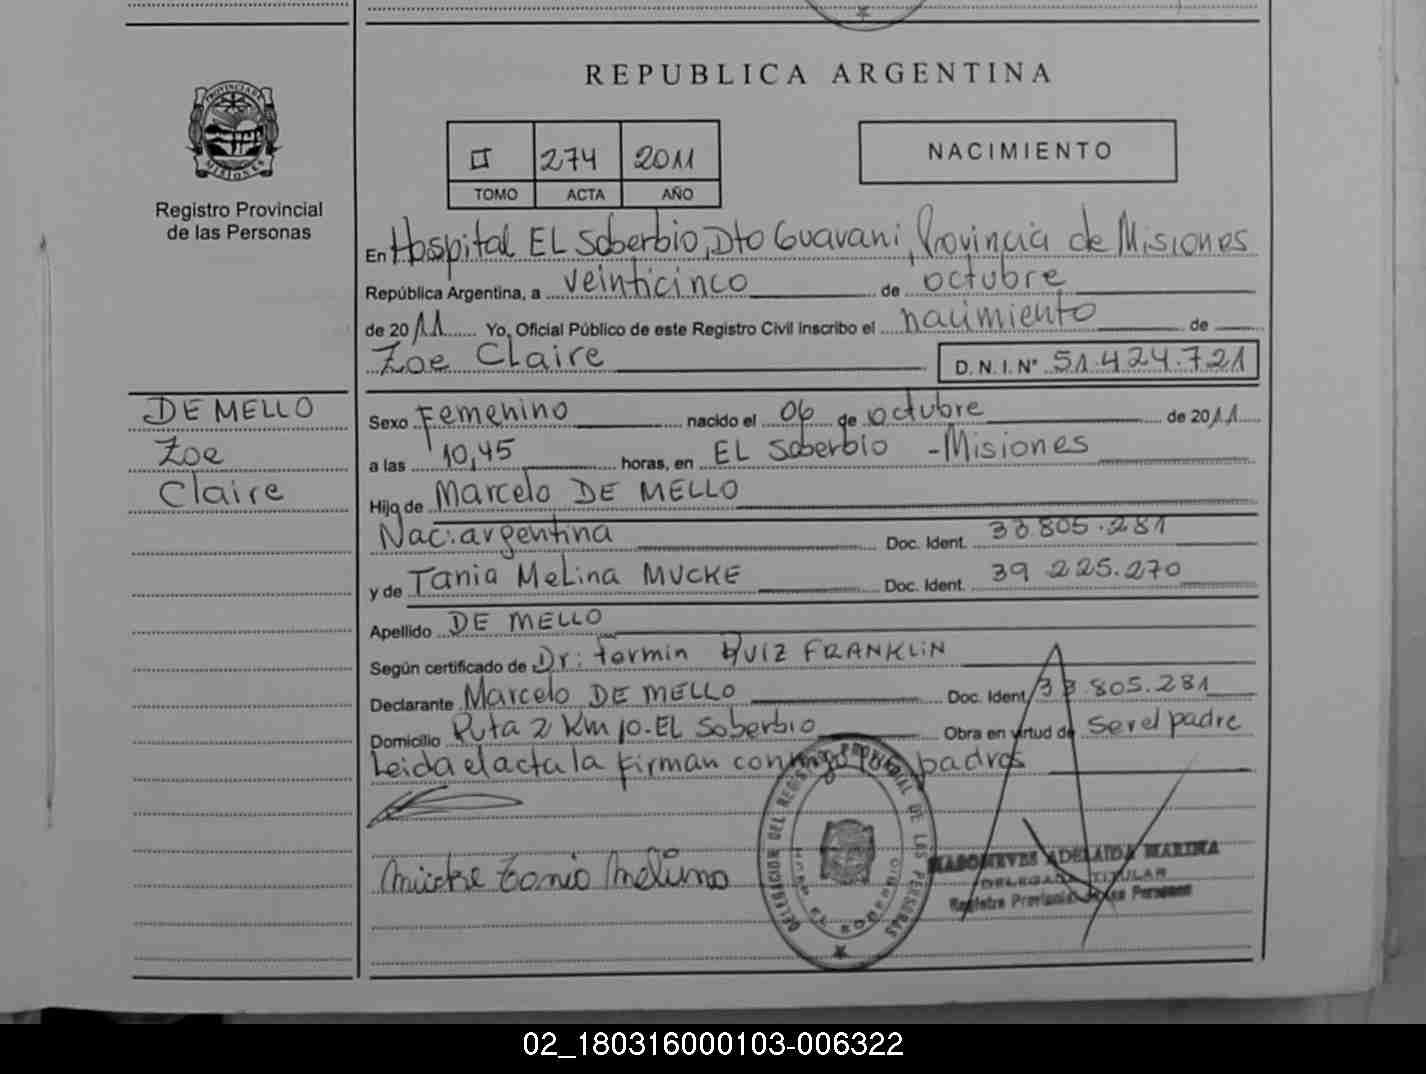 REPUBLICA ARGENTINA
PROVINCIA DE
MISIONES
Registro Provincial
de las Personas
II 274 2011
TOMO ACTA AÑO
NACIMIENTO
En Hospital EL Soberbio, Dto Guarani, Provincia de Misiones
República Argentina, a veinticinco de octubre
de 2011 Yo, Oficial Público de este Registro Civil inscribo el nacimiento de
Zoe Claire D.N.I. Nº 51.424.721
DE MELLO
Zoe
Claire
Sexo Femenino nacido el 06 de octubre de 2011
a las 10,45 horas, en EL Soberbio - Misiones
Hijo de Marcelo DE MELLO
Nac: argentina Doc. Ident. 33.805.281
y de Tania Melina MUCKE Doc. Ident. 39 225.270
Apellido DE MELLO
Según certificado de Dr: Fermin RUIZ FRANKLIN
Declarante Marcelo DE MELLO Doc. Ident. 33.805.281
Domicilio Ruta 2 Km 10-EL Soberbio Obra en virtud de ser el padre
Leida el acta la firman conmigo los padres
Mücke Tania Melina
DELEGACION DEL REGISTRO PROVINCIAL DE LAS PERSONAS
EL SOBERBIO
ADELAIDA MARINA
DELEGADA TITULAR
Registro Provincial de las Personas
02_180316000103-006322